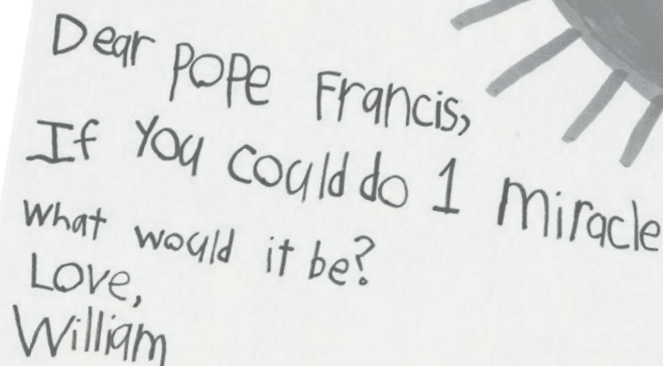 Dear POPe Francis,
If You could do 1 Miracle
What would it be?
Love,
William